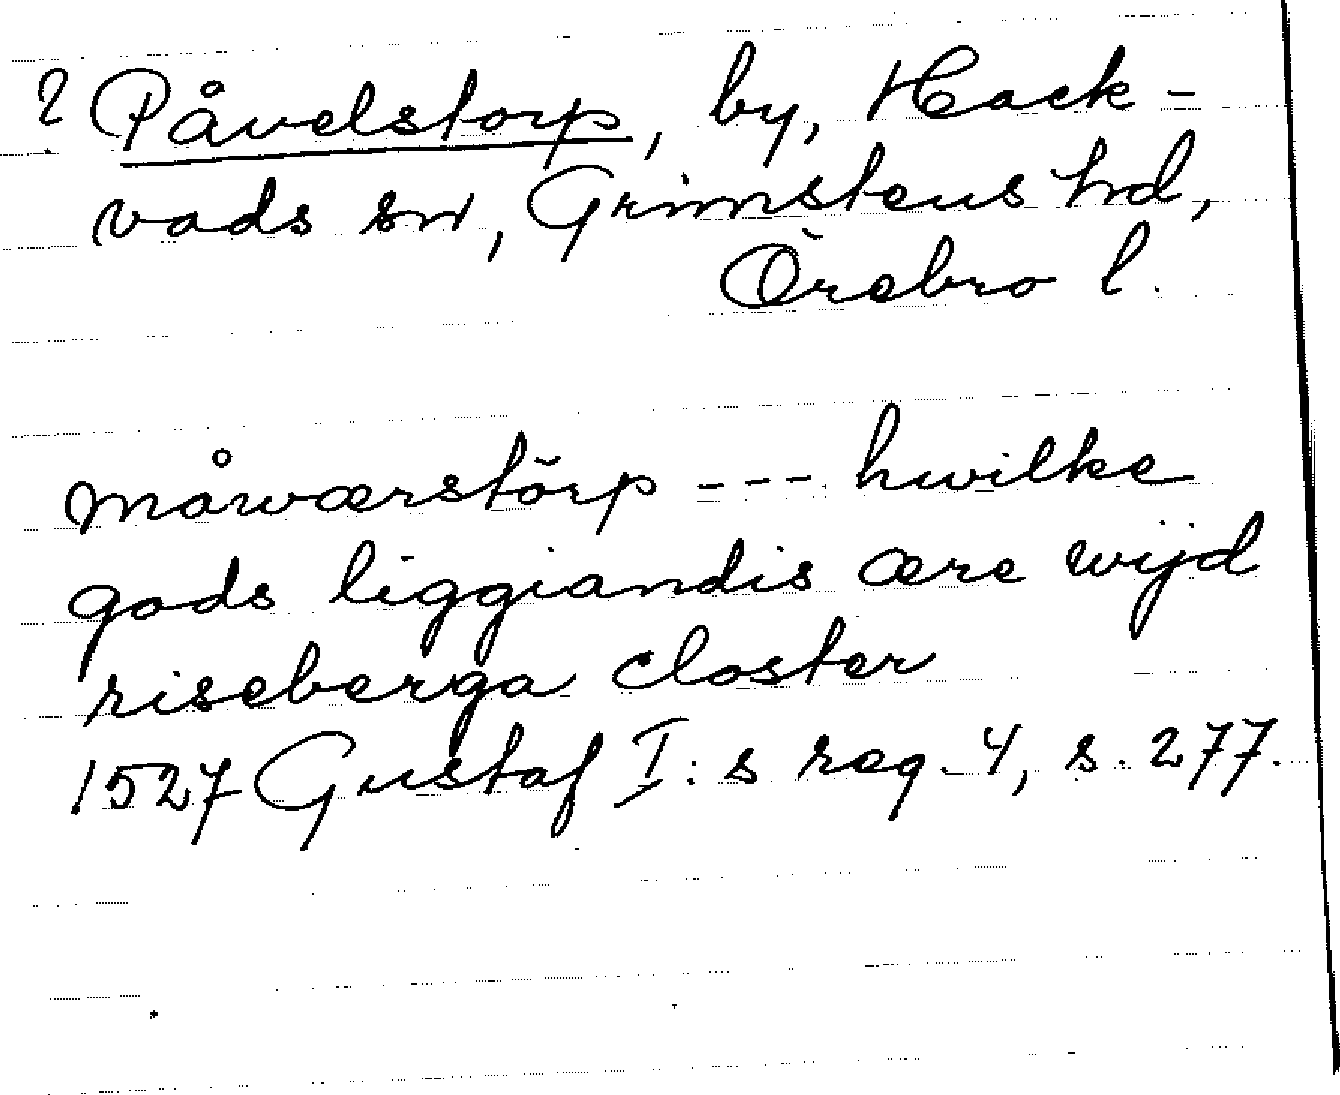 ? Påvelstorp, by, Hack-
vads sn, Grimstens hd,
Örebro l.
måwærstörp --- hwilke
gods liggiandis ære wijd
riseberga closter
1527 Gustaf I:s reg. 4, s. 277.